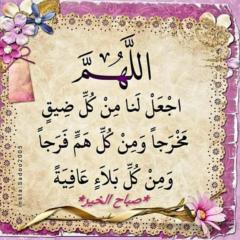 اللَّهُمَّ
اجْعَلْ لَنا مِنْ كُلِّ ضِيقٍ
مَخْرَجاً وَمِنْ كُلِّ هَمٍّ فَرَجاً
وَمِنْ كُلِّ بَلاَءٍ عَافِيَةً
*صباح الخير*
insta:Sadoo2005